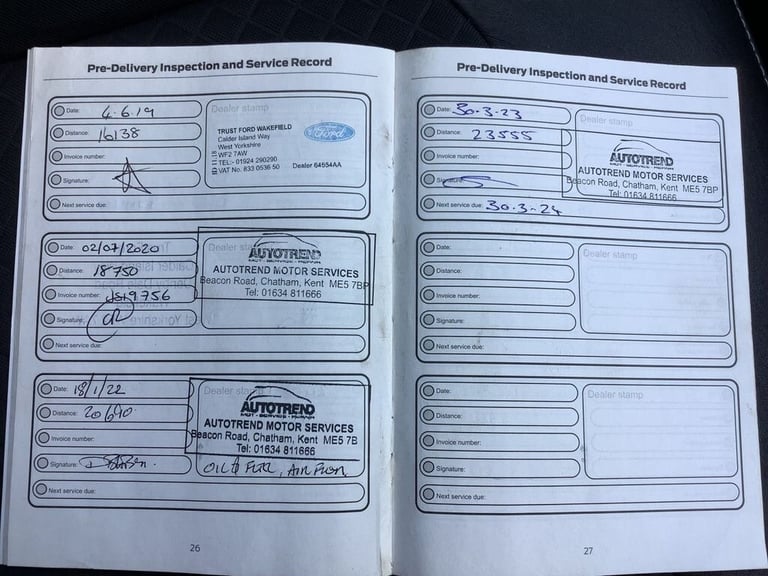 Pre-Delivery Inspection and Service Record
Date: 4.6.19
Distance: 16138
Invoice number:
Signature:
Next service due:
Dealer stamp
TRUST FORD WAKEFIELD
Calder Island Way
West Yorkshire
WF2 7AW
TEL:- 01924 290290
VAT No. 833 0536 50 Dealer 64554AA
Ford
Date: 02/07/2020
Distance: 18750
Invoice number: 9756
Signature: CR
Next service due:
Dealer stamp
AUTOTREND
MOT - SERVICE - REPAIR
AUTOTREND MOTOR SERVICES
Beacon Road, Chatham, Kent ME5 7BP
Tel: 01634 811666
Date: 18/1/22
Distance: 20690
Invoice number:
Signature:
Next service due:
Dealer stamp
AUTOTREND
MOT - SERVICE - REPAIR
AUTOTREND MOTOR SERVICES
Beacon Road, Chatham, Kent ME5 7B
Tel: 01634 811666
26
Pre-Delivery Inspection and Service Record
Date: 30.3.23
Distance: 23555
Invoice number:
Signature:
Next service due: 30.3.24
Dealer stamp
AUTOTREND
MOT - SERVICE - REPAIR
AUTOTREND MOTOR SERVICES
Beacon Road, Chatham, Kent ME5 7BP
Tel: 01634 811666
Date:
Distance:
Invoice number:
Signature:
Next service due:
Dealer stamp
Date:
Distance:
Invoice number:
Signature:
Next service due:
Dealer stamp
27